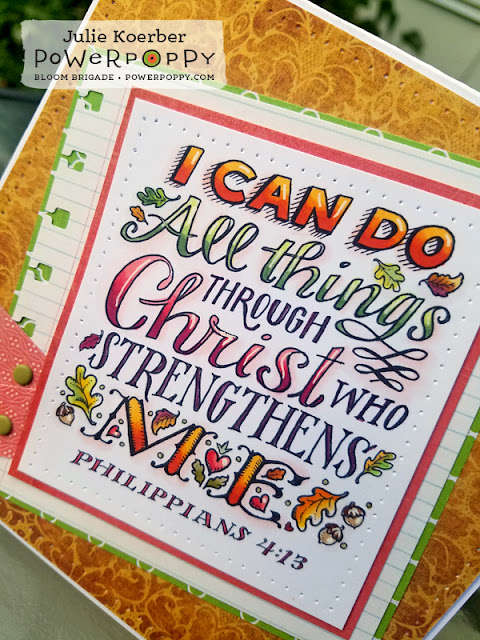 Julie Koerber
POWERPOPPY
BLOOM BRIGADE • POWERPOPPY.COM
I CAN DO
All things
THROUGH
Christ WHO
STRENGTHENS
ME
PHILIPPIANS 4:13